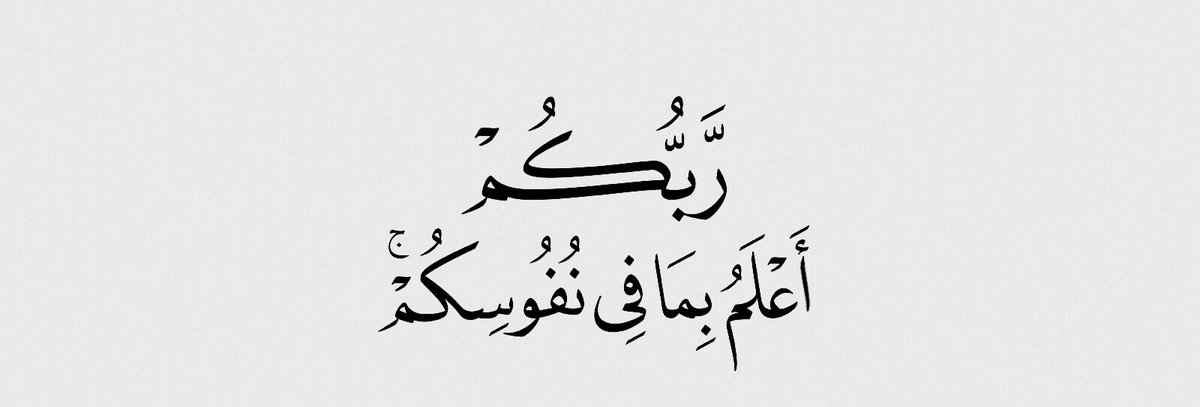 رَّبُّكُمْ
أَعْلَمُ بِمَا فِى نُفُوسِكُمْ ۚ